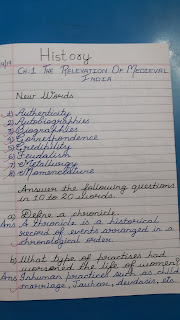 History
CH:1 THE RELEVATION OF MEDIEVAL
INDIA
New Words
1) Authenticity
2) Autobiographies
3) Biographies
4) Correspondence
5) Credibility
6) Feudalism
7) Metallurgy
8) Nomenclature
Answer the following questions
in 10 to 20 words.
a) Define a chronicle.
Ans A chronicle is a historical
record of events arranged in a
chronological order.
b) What type of practises had
worsened the life of women?
Ans Inhuman practises such as child
marriage, Jauhar, devdasis, etc.